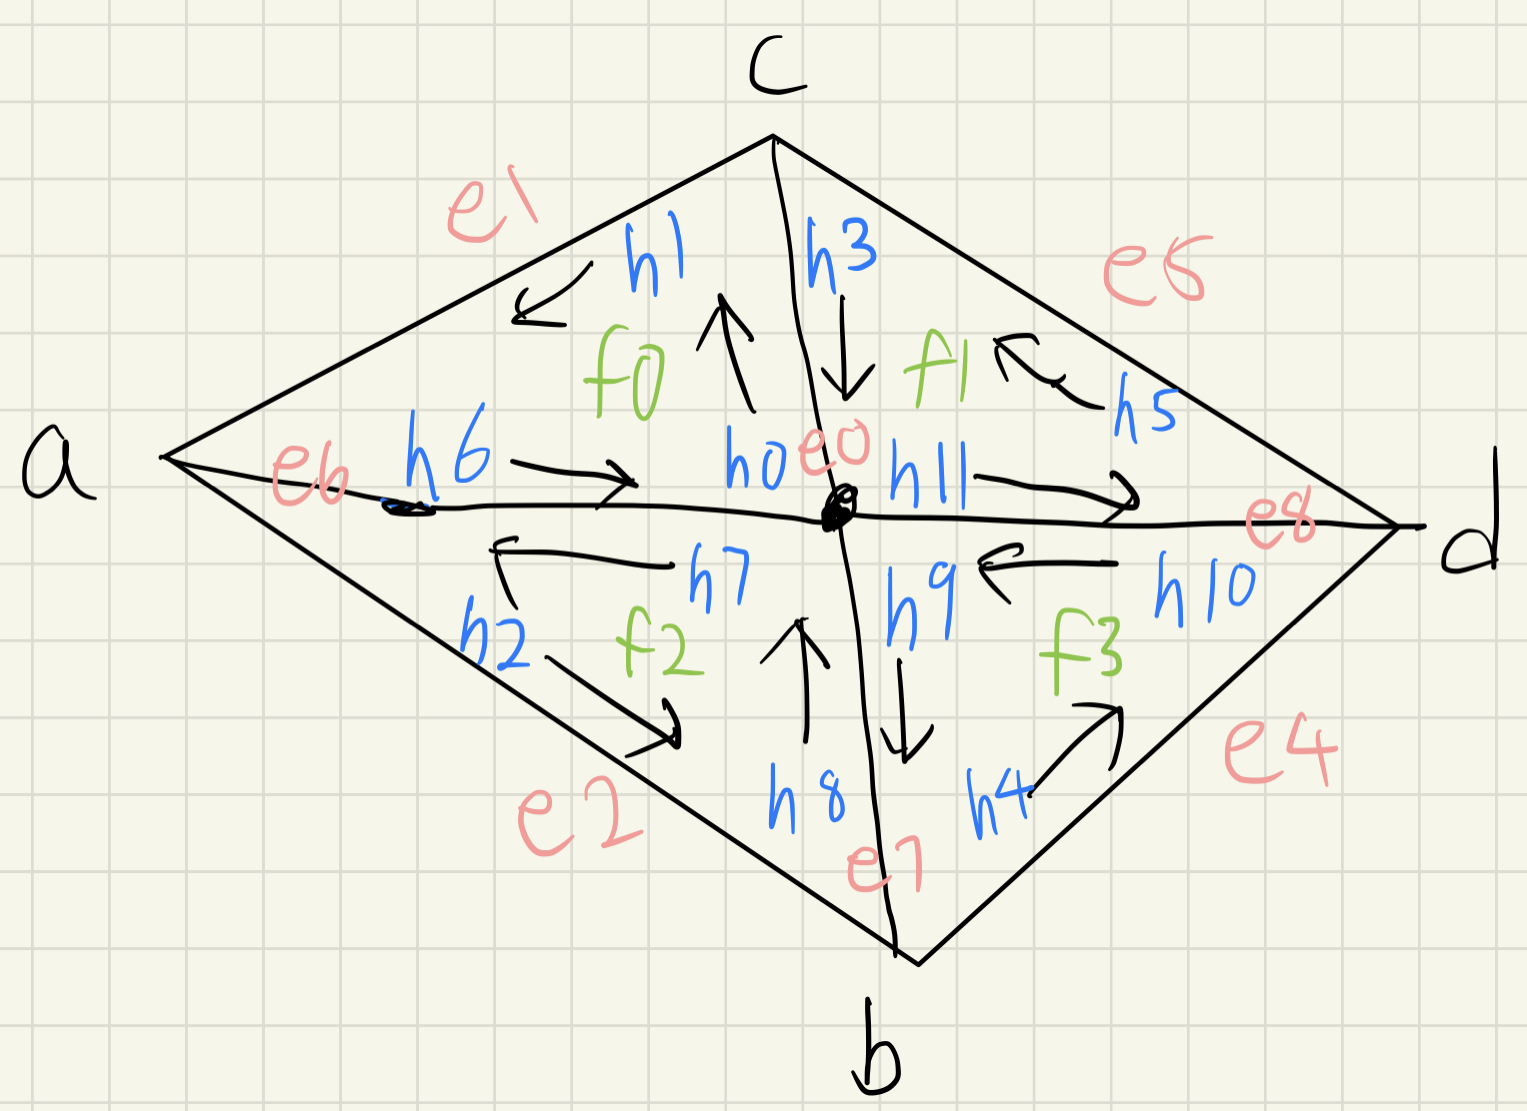 c
e1
h1
h3
e5
f0
f1
h5
a
e6
h6
h0
e0
h11
e8
d
h7
h9
h10
h2
f2
f3
e4
e2
h8
h4
e7
b